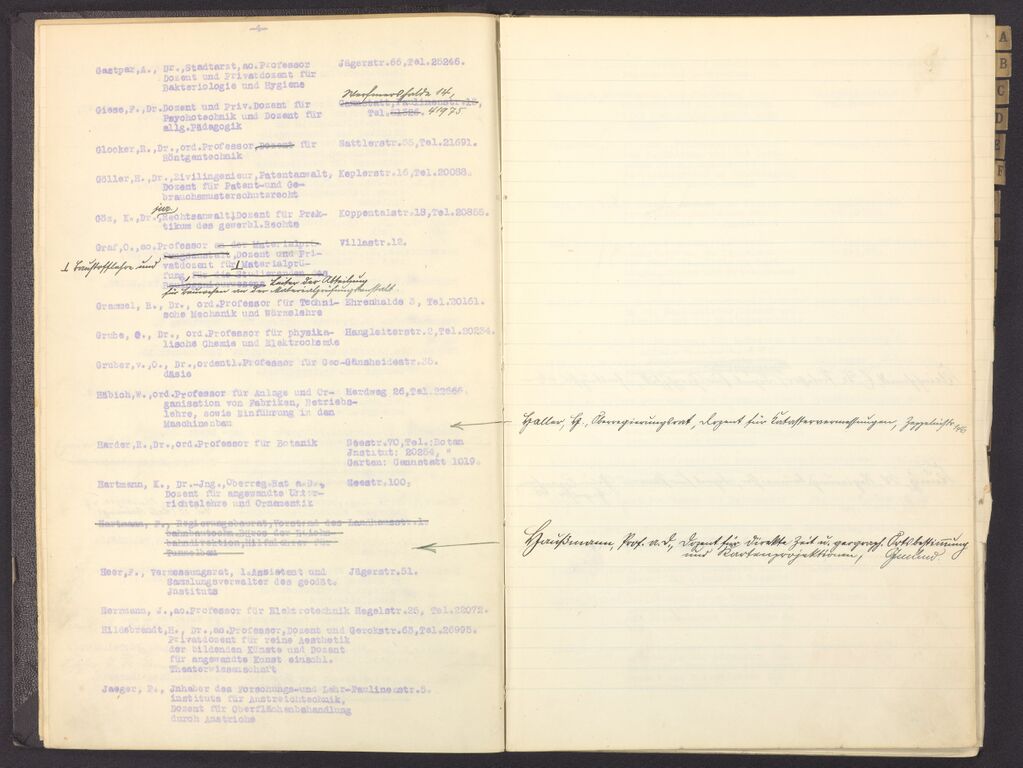 -4-
Gastpar,A., Dr.,Stadtarzt, ao.Professor Jägerstr.66,Tel.25246.
Dozent und Privatdozent für
Bakteriologie und Hygiene
Wernershalde 14,
Giese,F.,Dr.Dozent und Priv.Dozent für Cannstatt,Paulinenstr.
Psychotechnik und Dozent für Tel. 41975
allg.Pädagogik
Glocker,R.,Dr.,ord.Professor,Dozent für Sattlerstr.,Tel.21691.
Röntgentechnik
Göller,H.,Dr.,Zivilingenieur,Patentanwalt, Keplerstr.16,Tel.20088.
Dozent für Patent-und Ge-
brauchsmusterschutzrecht
jur.
Göz, K.,Dr.,Rechtsanwalt,Dozent für Prak- Koppentalstr.18,Tel.20855.
tikum des gewerbl.Rechts
Graf,O.,ao.Professor an der Materialprü- Villastr.12.
fungsanstalt,Dozent und Pri-
vatdozent für Materialprü-
Baustofflehre und
fung für die Studierenden des
Bauingenieurwesens Leiter der Abteilung
für Bauwesen an der Materialprüfungsanstalt.
Grammel, R., Dr., ord.Professor für Techni- Ehrenhalde 3, Tel.20161.
sche Mechanik und Wärmelehre
Grube, G., Dr., ord.Professor für physika- Hangleiterstr.2,Tel.20234.
lische Chemie und Elektrochemie
Gruber,v.,O., Dr.,ordentl.Professor für Geo-Gänsheidestr.35.
däsie
Häbich,W.,ord.Professor für Anlage und Or- Herdweg 26,Tel.22666.
ganisation von Fabriken, Betriebs-
lehre, sowie Einführung in den
Maschinenbau
Haller, H., Oberregierungsrat, Dozent für Katastervermessungen, Zeppelinstr.
Harder,R.,Dr.,ord.Professor für Botanik Seestr.70,Tel.:Botan
Jnstitut: 20254, "
Garten: Cannstatt 1019.
Hartmann, K., Dr.-Jng.,Oberreg.Rat a.D., Seestr.100.
Dozent für angewandte Unter-
richtslehre und Ornamentik
Hartmann, F., Regierungsbaurat,Vorstand des Landhausstr.1.
bahnbautechn.Büros der Reichs-
bahndirektion,Hilfslehrer für
Tunnelbau
Haußmann, Prof. a.D., Dozent für direkte Zeit u. geograph. Ortsbestimmung
und Kartenprojektionen, Gmünd
Heer,F., Vermessungsrat, 1.Assistent und Jägerstr.51.
Sammlungsverwalter des geodät.
Jnstituts
Herrmann, J.,ao.Professor für Elektrotechnik Hegelstr.25, Tel.22072.
Hildebrandt,H., Dr.,ao.Professor,Dozent und Gerokstr.63,Tel.26995.
Privatdozent für reine Aesthetik
der bildenden Künste und Dozent
für angewandte Kunst einschl.
Theaterwissenschaft
Jaeger, P., Jnhaber des Forschungs-und Lehr-Paulinenstr.5.
instituts für Anstreichtechnik,
Dozent für Oberflächenbehandlung
durch Anstriche
A
B
C
D
E
F